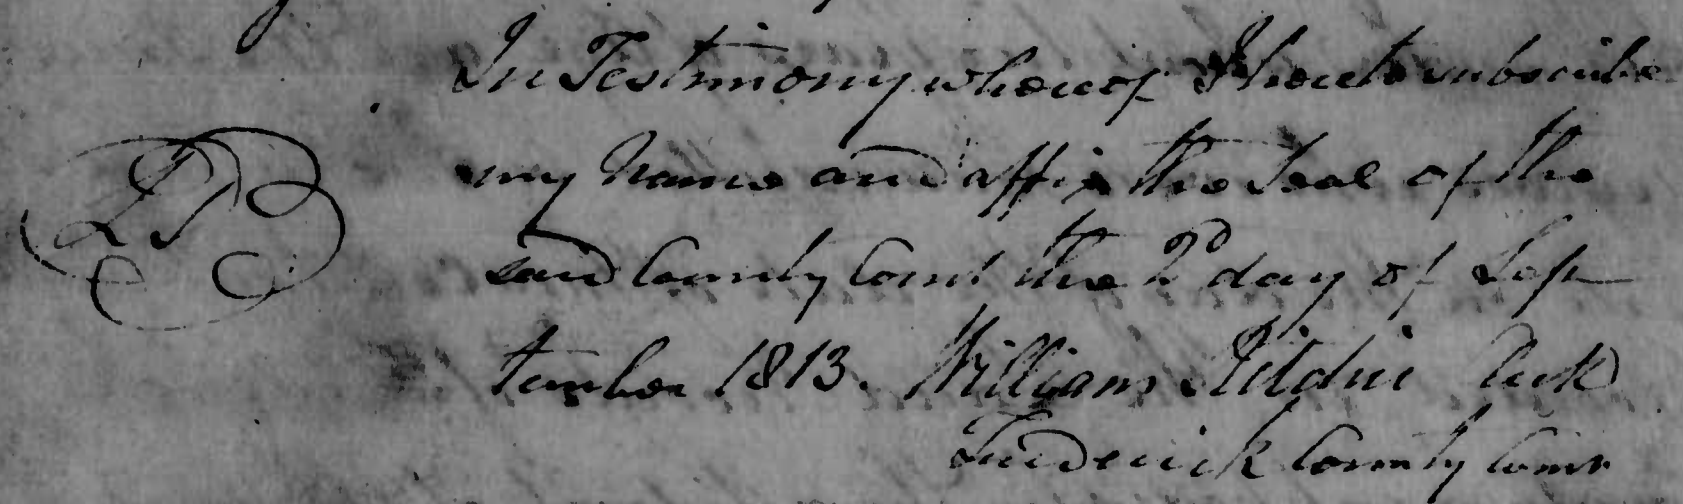 In Testimony whereof I hereto subscribe
my Name and affix the Seal of the
LS
said County Court the 2d day of Sep
tember 1813. William Ritchie Clerk
Frederick County Court